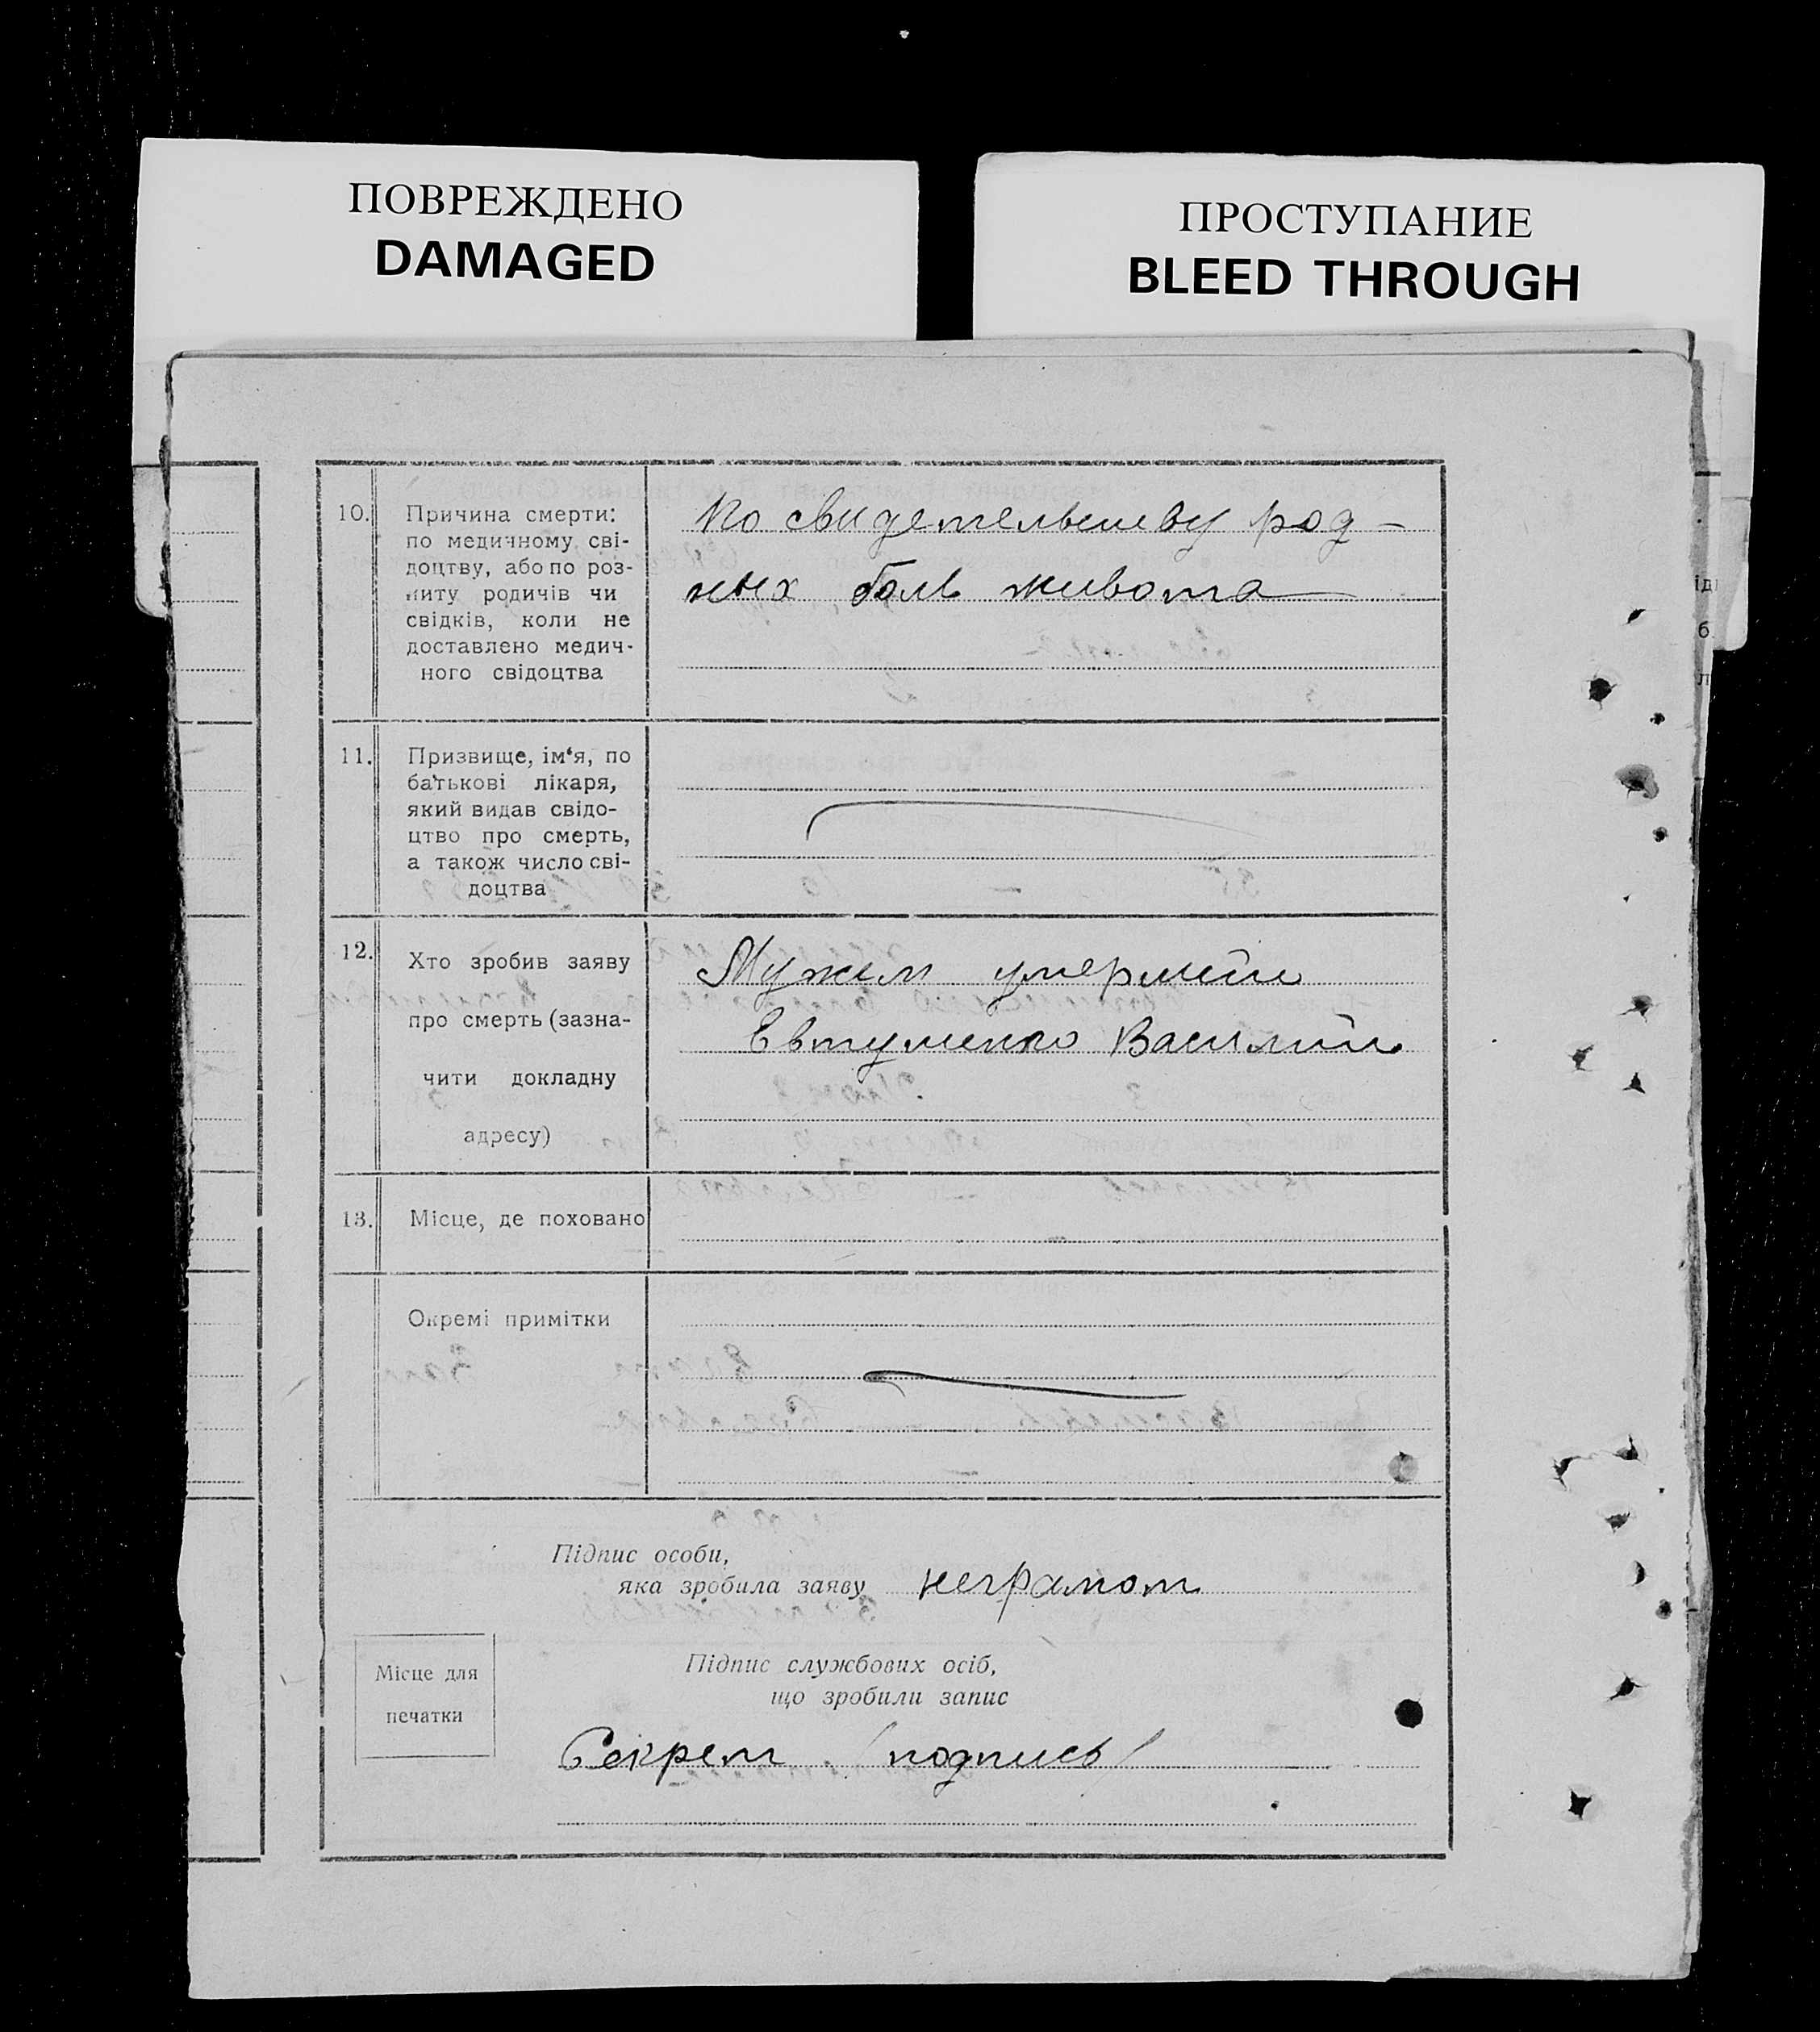 ПОВРЕЖДЕНО
DAMAGED
ПРОСТУПАНИЕ
BLEED THROUGH
10. Причина смерти:
по медичному сві-
доцтву, або по роз-
питу родичів чи
свідків, коли не
доставлено медич-
ного свідоцтва
По свидетельству род-
ных боль живота
11. Призвище, ім‘я, по
батькові лікаря,
який видав свідо-
цтво про смерть,
а також число сві-
доцтва
12. Хто зробив заяву
про смерть (зазна-
чити докладну
адресу)
Мужем умершей
Евтушенко Василий
13. Місце, де поховано
Окремі примітки
Підпис особи,
яка зробила заяву неграмот
Місце для
печатки
Підпис службових осіб,
що зробили запис
Секрет /подпись/